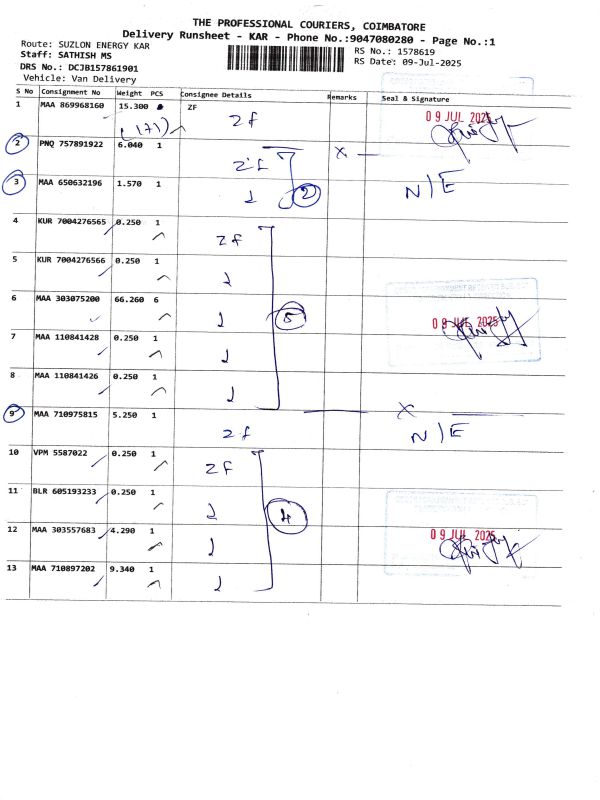 THE PROFESSIONAL COURIERS, COIMBATORE
Delivery Runsheet - KAR - Phone No.:9047080280 - Page No.:1
Route: SUZLON ENERGY KAR
Staff: SATHISH MS
DRS No.: DCJB157861901
Vehicle: Van Delivery
RS No.: 1578619
RS Date: 09-Jul-2025
S No Consignment No Weight PCS Consignee Details Remarks Seal & Signature
1 MAA 869968160 15.300 ZF ZF 09 JUL 2025
(1+1)
2 PNQ 757891922 6.040 1 ZF X
3 MAA 650632196 1.570 1 2 N/E
4 KUR 7004276565 0.250 1 ZF
5 KUR 7004276566 0.250 1
6 MAA 303075200 66.260 6 5 09 JUL 2025
7 MAA 110841428 0.250 1
8 MAA 110841426 0.250 1
9 MAA 710975815 5.250 1 ZF X N/E
10 VPM 5587022 0.250 1 ZF
11 BLR 605193233 0.250 1 4
12 MAA 303557683 4.290 1 09 JUL 2025
13 MAA 710897202 9.340 1